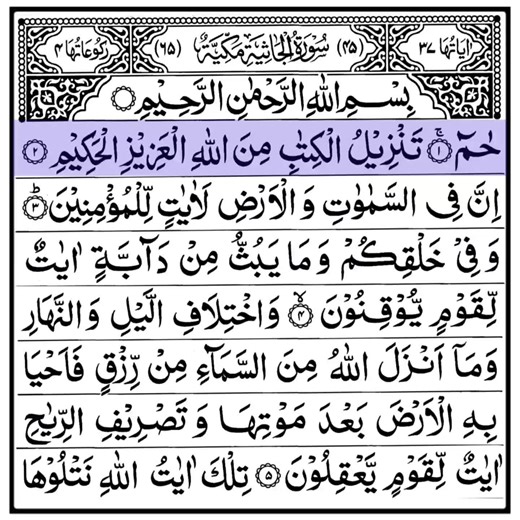 اٰيَاتُهَا ٣٧ (٤٥) سُوْرَةُ الْجَاثِيَةِ مَكِّيَّةٌ (٦٥) رُكُوْعَاتُهَا ٤
بِسْمِ اللّٰهِ الرَّحْمٰنِ الرَّحِيْمِ
حٰمٓ ۚ﴿١﴾ تَنْزِيْلُ الْكِتٰبِ مِنَ اللّٰهِ الْعَزِيْزِ الْحَكِيْمِ ﴿٢﴾
اِنَّ فِى السَّمٰوٰتِ وَالْاَرْضِ لَاٰيٰتٍ لِّلْمُؤْمِنِيْنَ ؕ﴿٣﴾
وَفِىْ خَلْقِكُمْ وَمَا يَبُثُّ مِنْ دَآبَّةٍ اٰيٰتٌ
لِّقَوْمٍ يُّوْقِنُوْنَ ۙ﴿٤﴾ وَاخْتِلَافِ الَّيْلِ وَالنَّهَارِ
وَمَاۤ اَنْزَلَ اللّٰهُ مِنَ السَّمَآءِ مِنْ رِّزْقٍ فَاَحْيَا
بِهِ الْاَرْضَ بَعْدَ مَوْتِهَا وَتَصْرِيْفِ الرِّيٰحِ
اٰيٰتٌ لِّقَوْمٍ يَّعْقِلُوْنَ ﴿٥﴾ تِلْكَ اٰيٰتُ اللّٰهِ نَتْلُوْهَا